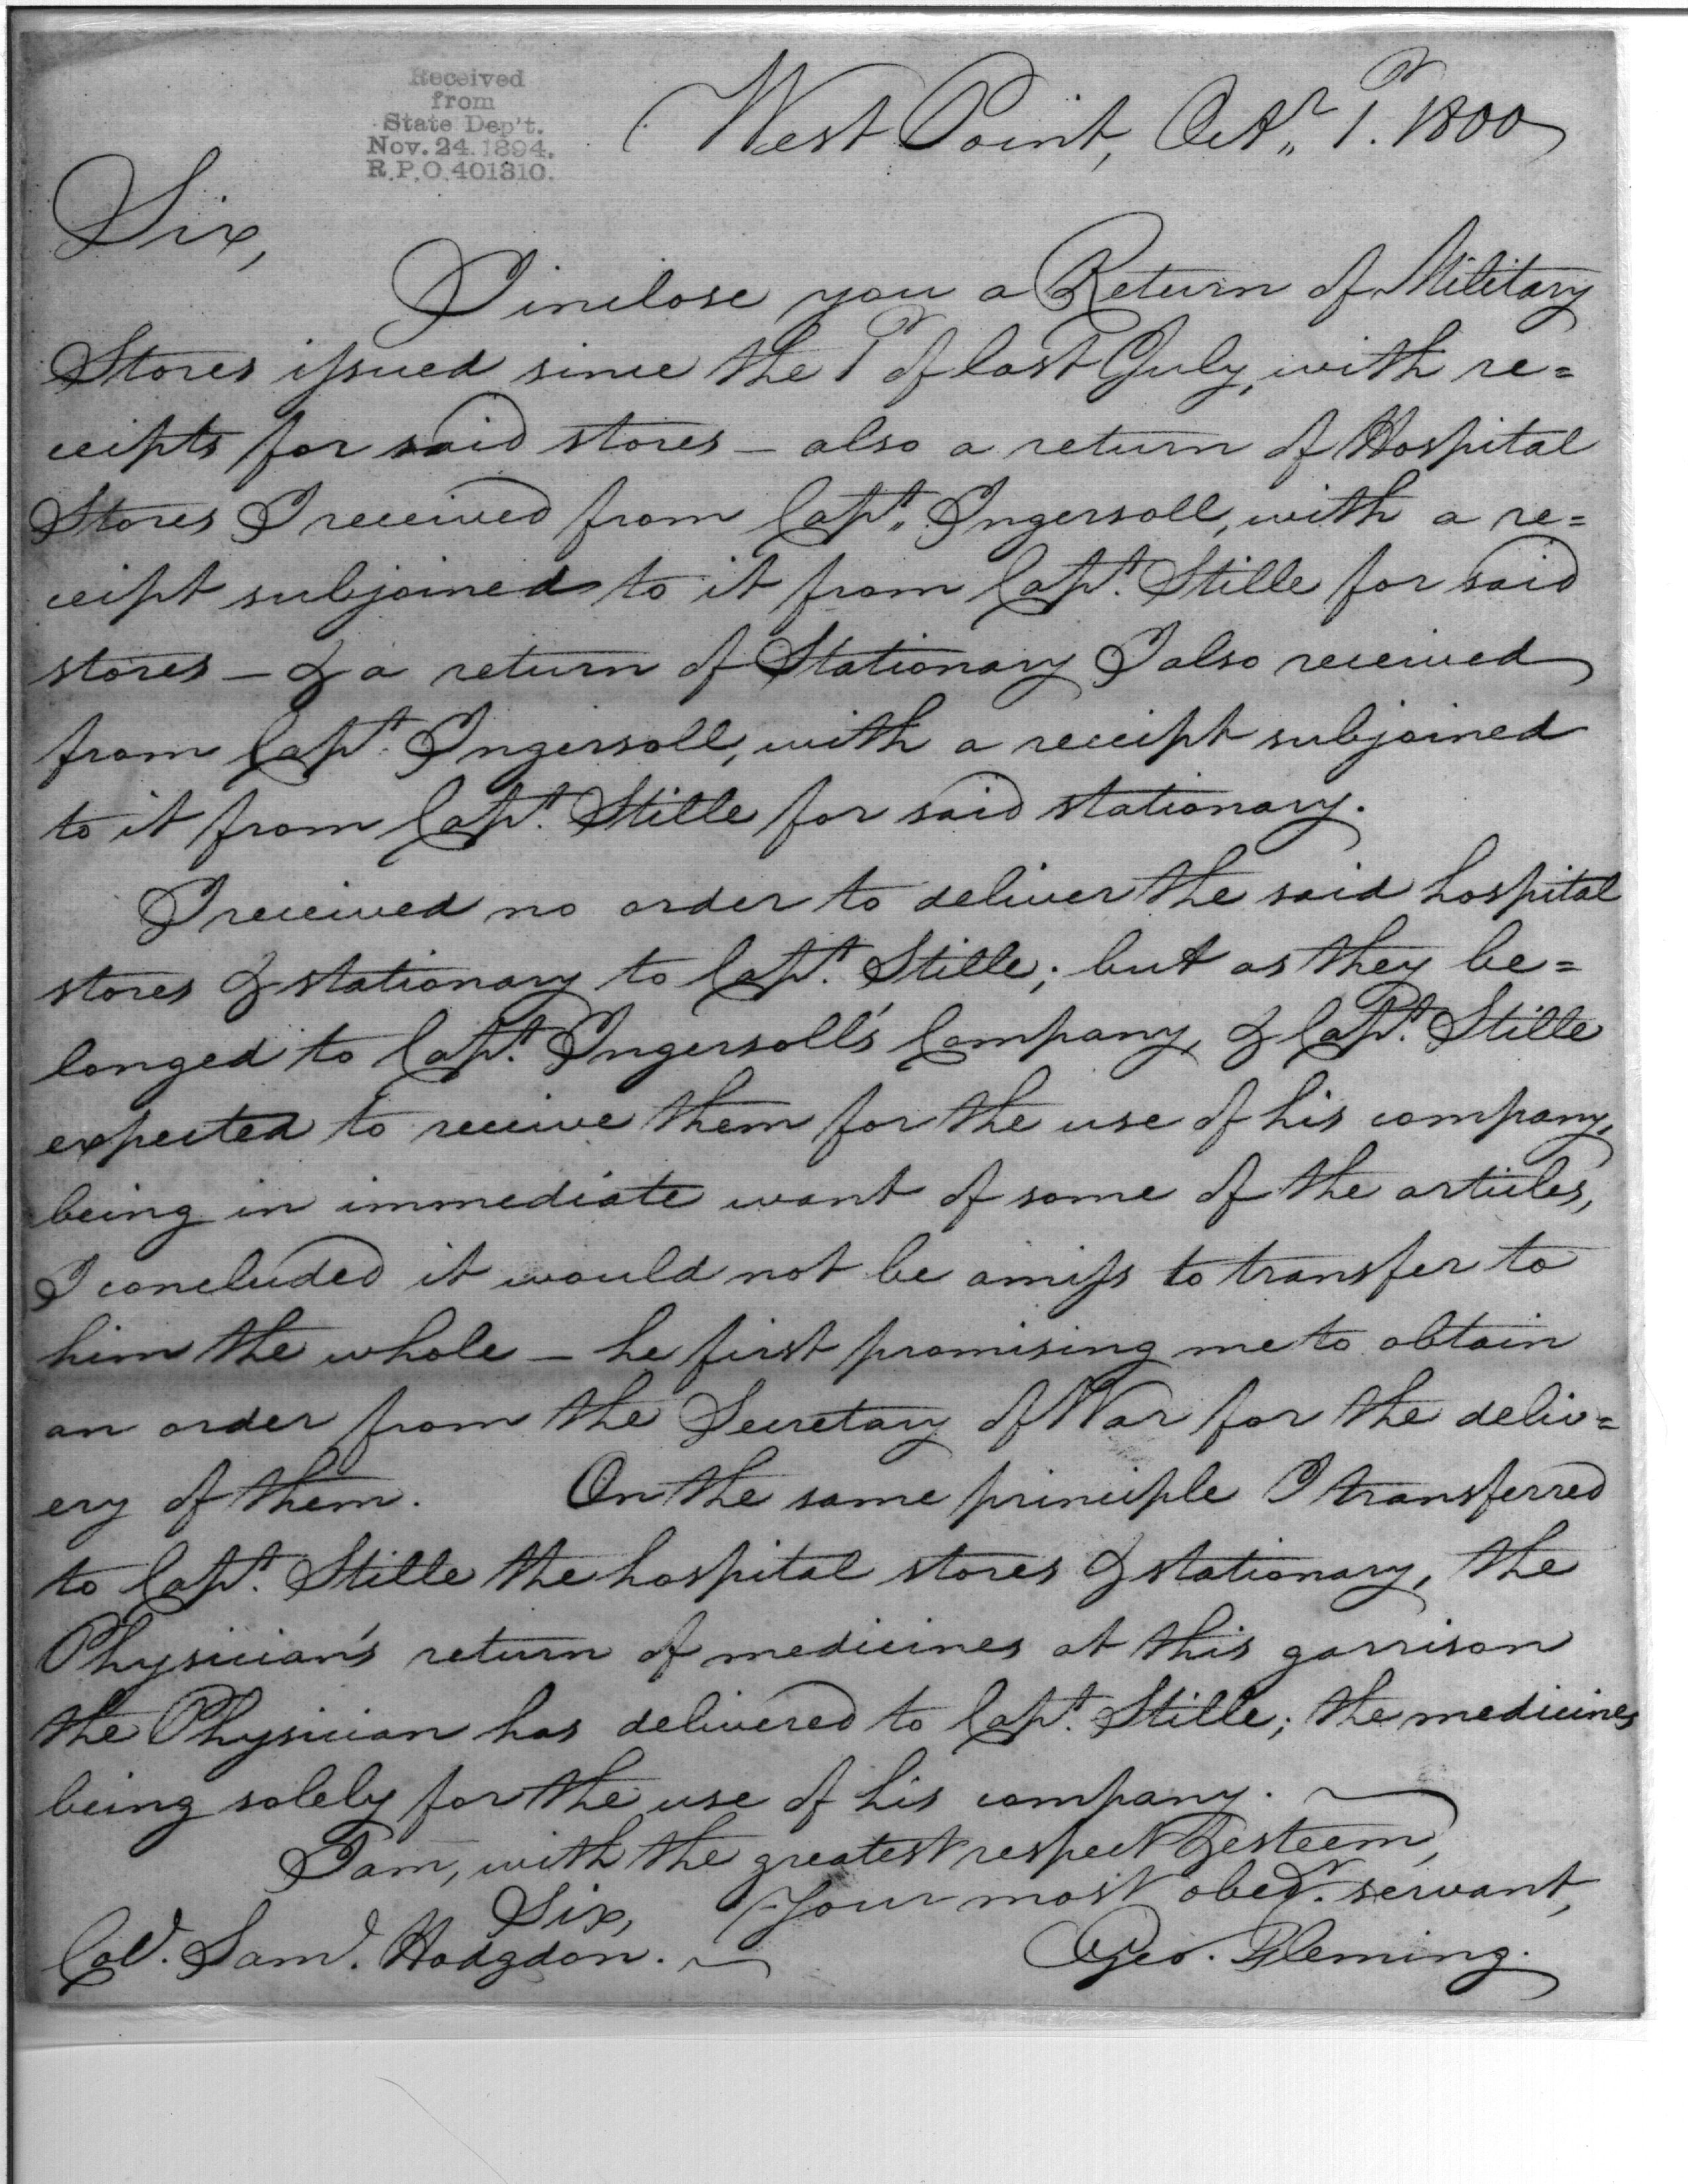 Received
from
State Dep't.
Nov. 24 1894.
R.P.O. 401310.
West Point, Octr. 1st. 1800
Sir,
I inclose you a Return of Military
Stores issued since the 1st of last July, with re=
ceipts for said stores – also a return of Hospital
Stores I received from Capt. Ingersoll, with a re=
ceipt subjoined to it from Capt. Stille for said
stores – & a return of Stationary I also received
from Capt. Ingersoll, with a receipt subjoined
to it from Capt. Stille for said stationary.
I received no order to deliver the said hospital
stores & stationary to Capt. Stille; but as they be=
longed to Capt. Ingersoll's Company, & Capt. Stille
expected to receive them for the use of his company,
being in immediate want of some of the articles,
I concluded it would not be amiss to transfer to
him the whole – he first promising me to obtain
an order from the Secretary of War for the deliv=
ery of them. On the same principle I transferred
to Capt. Stille the hospital stores & stationary, the
Physician's return of medicines at this garrison
the Physician has delivered to Capt. Stille; the medicines
being solely for the use of his company.
I am, with the greatest respect & esteem,
Sir, Your most obedt. servant,
Col. Saml. Hodgdon. Geo. Fleming.